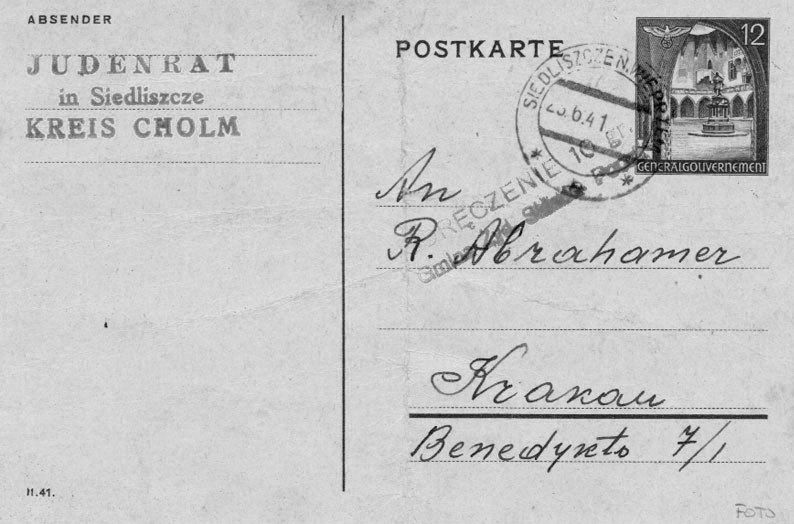 ABSENDER
JUDENRAT
in Siedliszcze
KREIS CHOLM
II.41.
POSTKARTE
12
GENERALGOUVERNEMENT
SIEDLISZCZE N. WIEPRZEM
23.6.41
RĘCZENIE 10 gr.
Gmina
An
R. Abrahamer
Krakau
Benedykto 7/1
FOTO